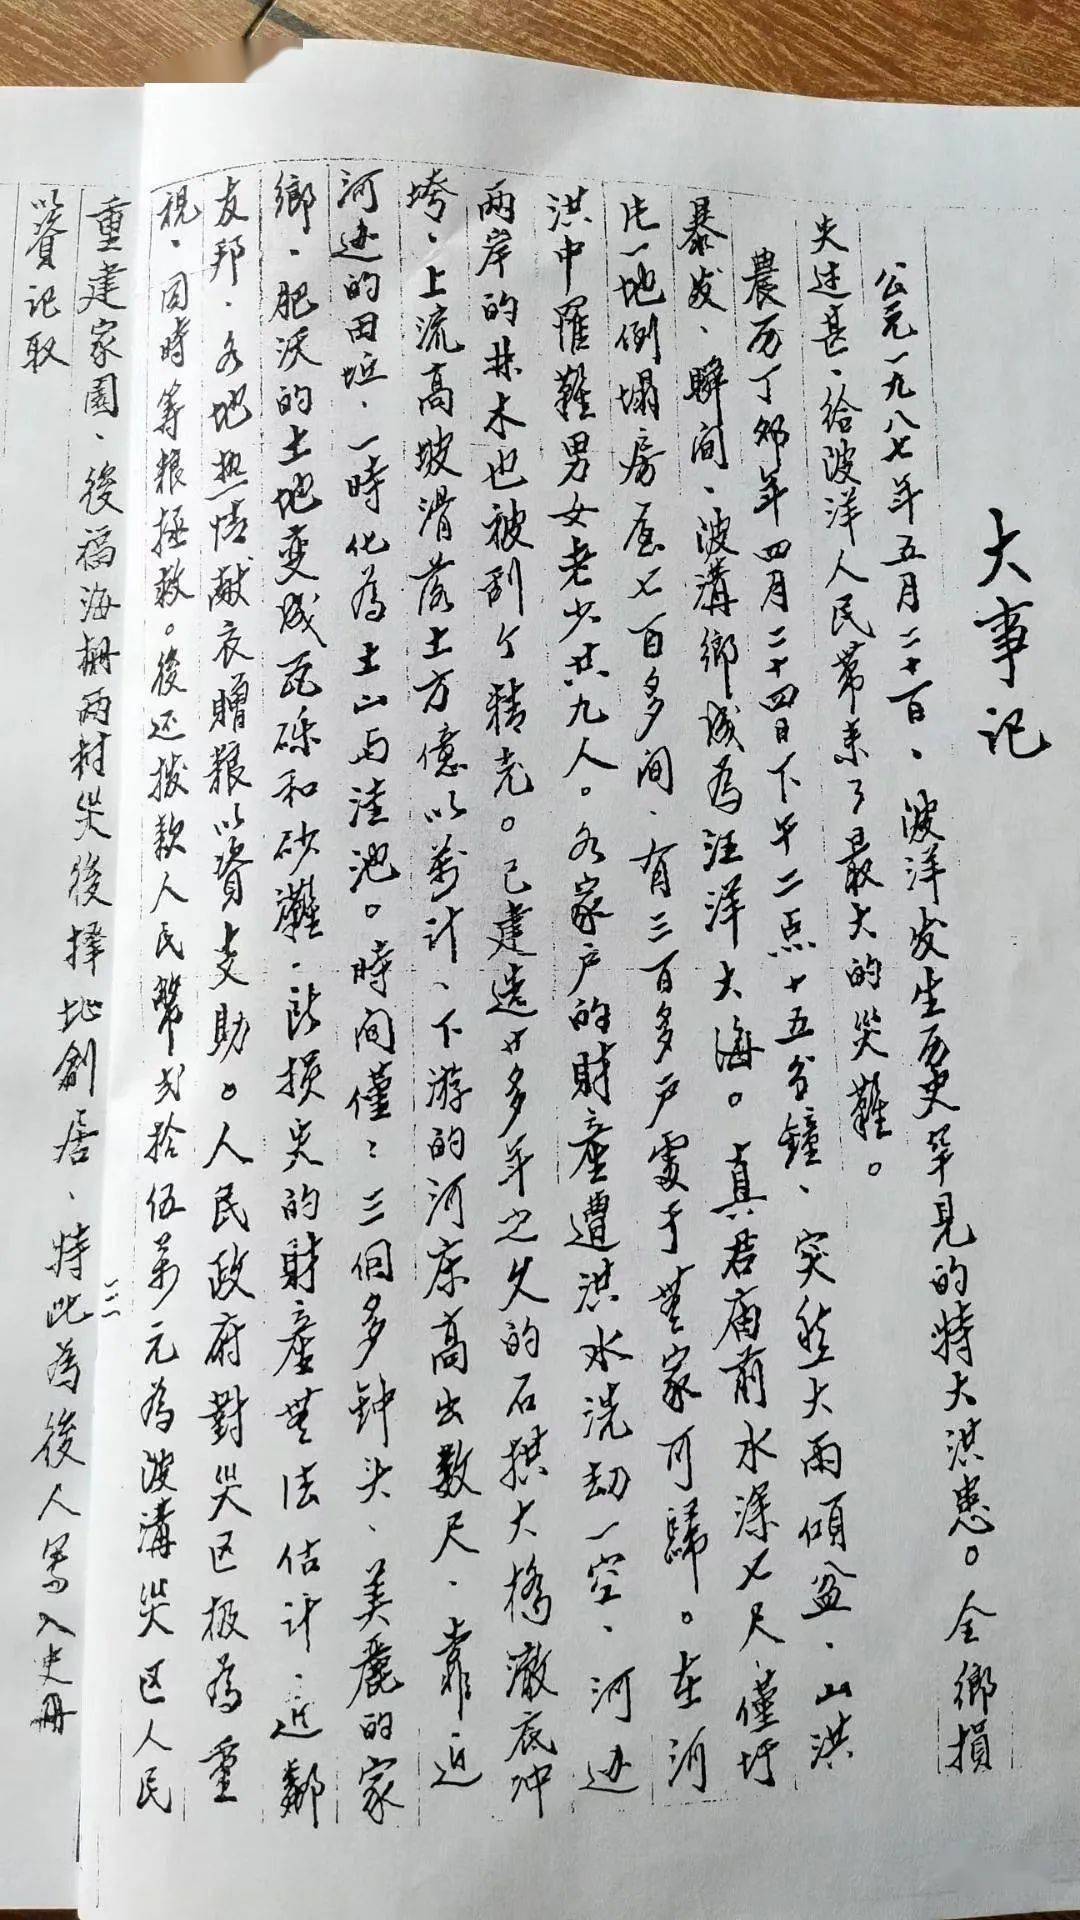 大事记
公元一九八七年五月二十日、波洋发生历史罕见的特大洪患。全鄉損
失过甚、给波洋人民带来了最大的災難。
農历丁卯年四月二十四日下午二点十五分鐘、突然大雨傾盆、山洪
暴发、瞬间、波溝鄉成為汪洋大海。真君庙前水深七尺、僅圩
此一地倒塌房屋七百多间、有三百多户處于無家可歸。在河
洪中罹難男女老少共九人。各家户的財產遭洪水洗劫一空、河边
两岸的林木也被刮个精光。已建造廿多年之久的石拱大橋澈底冲
垮、上流高坡滑落土方億以萬计、下游的河床高出数尺、靠近
河边的田坵、一時化為土山与洼池。時间僅三個多钟头、美麗的家
鄉、肥沃的土地变成瓦砾和砂灘、所損失的財產無法估计、近鄰
友邦、各地热情献衣贈粮以資支助。人民政府對災区极為重
視、同時筹粮拯救。後还拨款人民幣弍拾伍萬元為波溝災区人民
重建家園、後福海栅两村災後擇地創居、特此為後人写入史册
以資记取
三